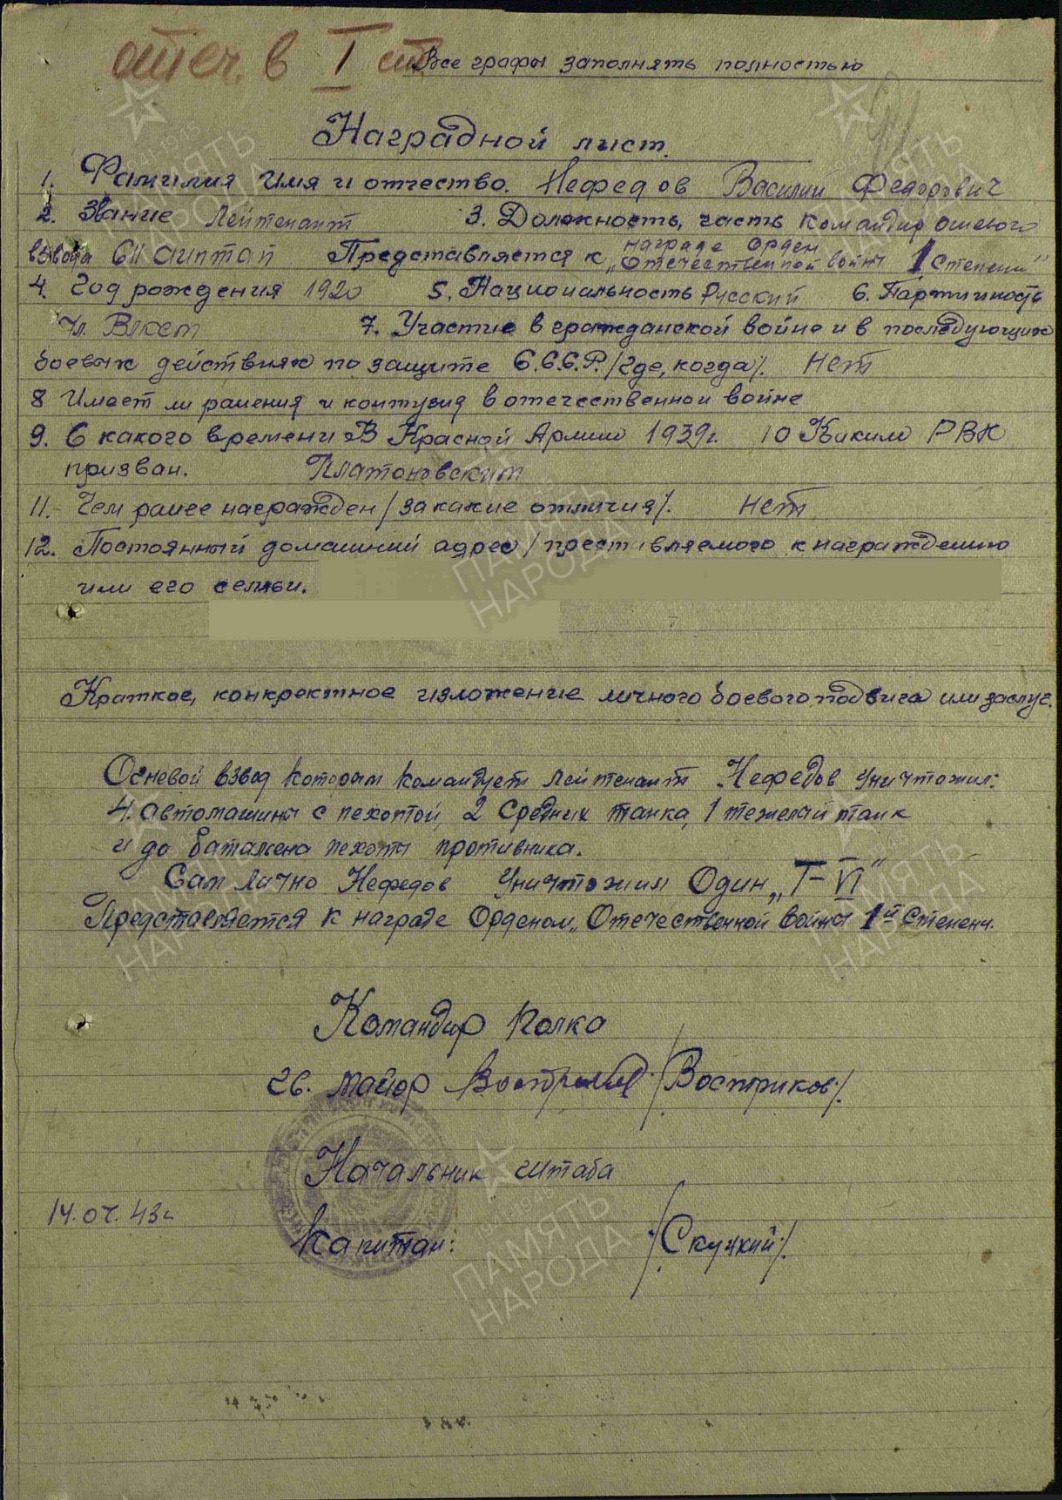 отеч. в I ст
Все графы заполнять полностью
Наградной лист.
1. Фамилия имя и отчество. Нефедов Василий Федорович
2. Звание Лейтенант 3. Должность, часть командир огневого
взвода Представляется к награде орден „отечественной войны 1 степени"
4. Год рождения 1920 5. Национальность Русский 6. Партийность
Чл. Влксм 7. Участие в гражданской войне и в последующих
боевых действиях по защите С.С.С.Р. /где, когда/. Нет
8 Имеет ли ранения и контузия в отечественной войне
9. С какого времени в Красной Армии 1939г. 10 Каким РВК
призван. Платоновским
11. Чем ранее награжден /за какие отличия/. Нет
12. Постоянный домашний адрес /преставляемого к награждению
или его семьи.
Краткое, конкректное изложение личного боевого подвига или заслуг.
Огневой взвод которым командует лейтенант Нефедов уничтожил:
4. автомашины с пехотой, 2 средних танка, 1 тежелый танк
и до баталена пехоты противника.
Сам лично Нефедов уничтожил Один „Т-VI"
Представляется к награде Орденом „Отечественной войны 1й степени.
Командир полка
гв. майор /Востриков/.
Начальник штаба
14.07.43г
Капитан: /Скуцкий/.
ПАМЯТЬ
НАРОДА
ПАМЯТЬ
НАРОДА
ПАМЯТЬ
НАРОДА
ПАМЯТЬ
НАРОДА
ПАМЯТЬ
НАРОДА
ПАМЯТЬ
НАРОДА